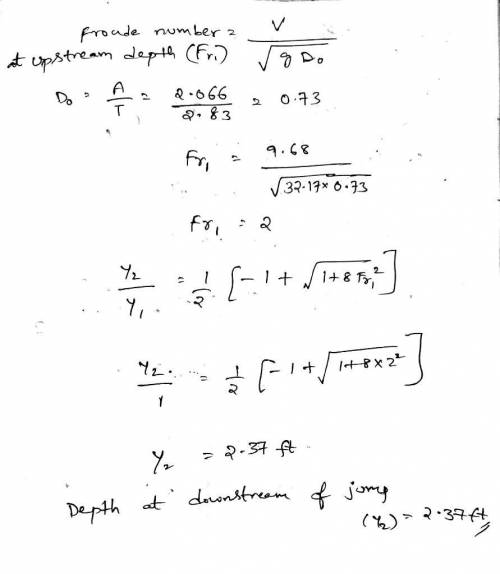 Froude number = V / √(g D₀)
at upstream depth (Fr₁)
D₀ = A/T = 2.066/2.83 = 0.73
Fr₁ = 9.68 / √(32.17×0.73)
Fr₁ = 2
Y₂/Y₁ = 1/2 [-1 + √(1+8 Fr₁²)]
Y₂/1 = 1/2 [-1+√(1+8×2²)]
Y₂ = 2.37 ft
Depth at downstream of jump
(Y₂) = 2.37 ft